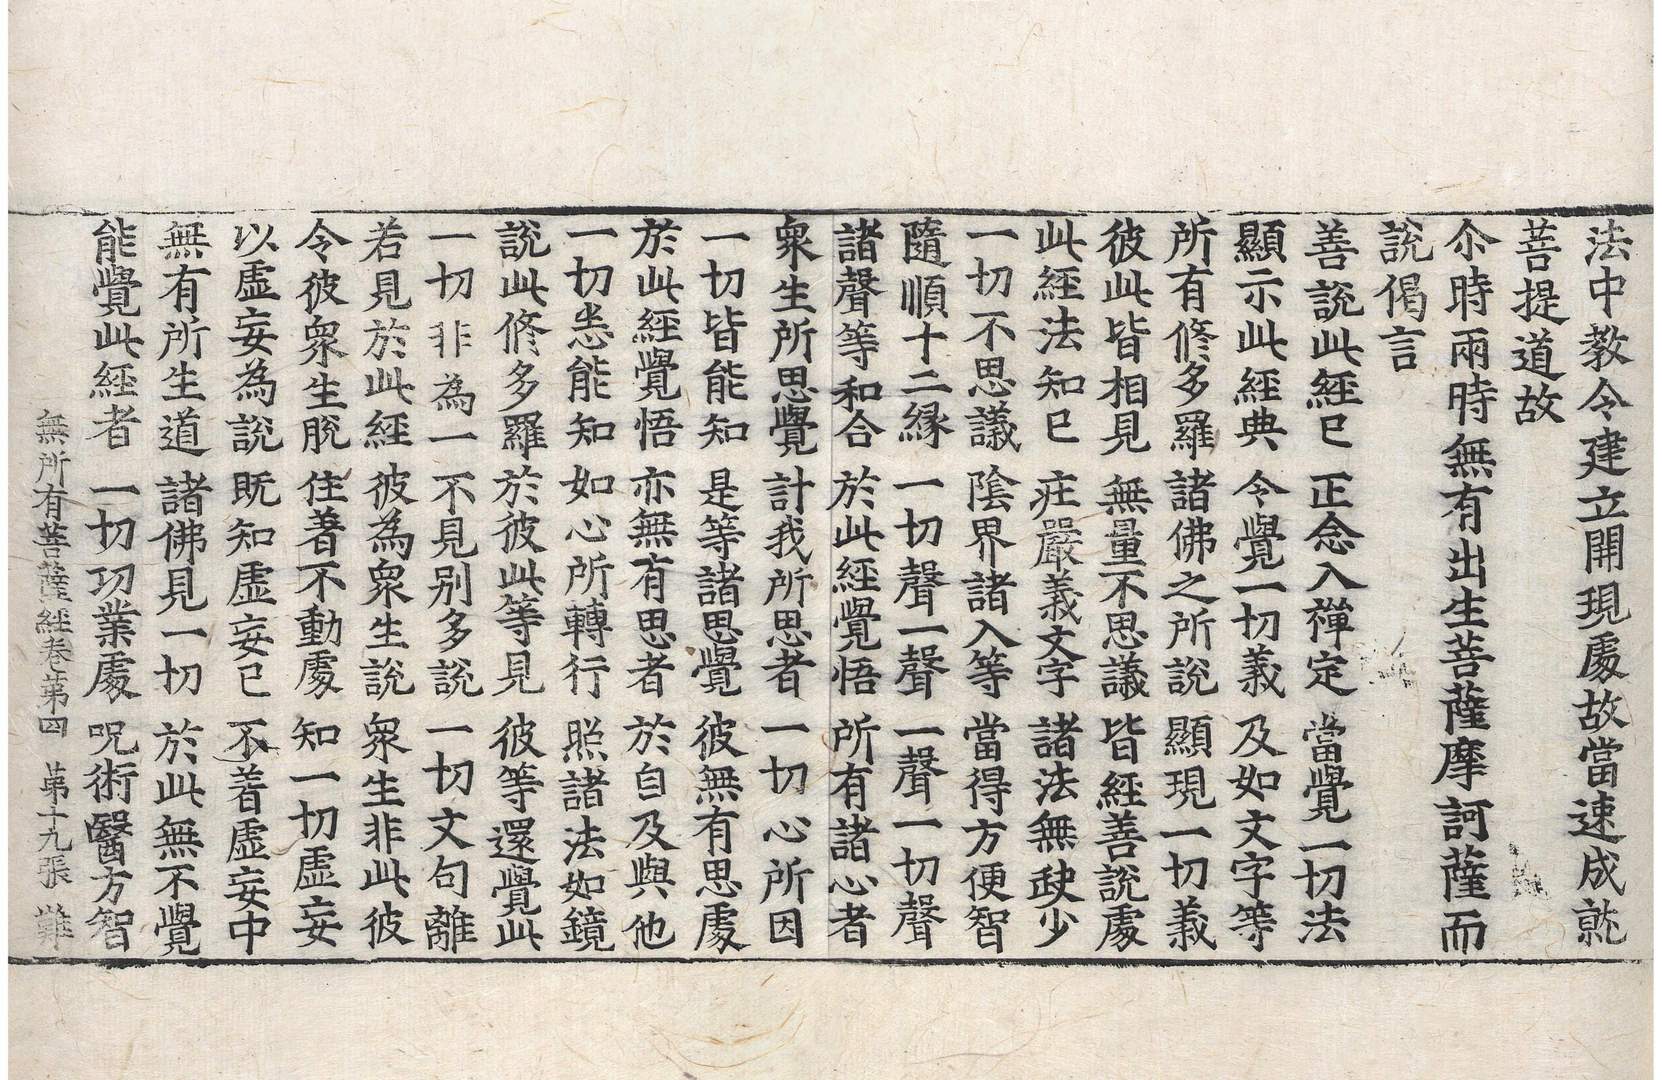 法中教令建立開現處故當速成就
菩提道故
尒時兩時無有出生菩薩摩訶薩而
說偈言
善說此經已 正念入禪定 當覺一切法
顯示此經典 令覺一切義 及如文字等
所有修多羅 諸佛之所說 顯現一切義
彼此皆相見 無量不思議 皆經善說處
此經法知已 庄嚴義文字 諸法無𡙇少
一切不思議 陰界諸入等 當得方便智
隨順十二縁 一切聲一聲 一聲一切聲
諸聲等和合 於此經覺悟 所有諸心者
衆生所思覺 計我所思者 一切心所因
一切皆能知 是等諸思覺 彼無有思處
於此經覺悟 亦無有思者 於自及與他
一切悉能知 如心所轉行 照諸法如鏡
說此修多羅 於彼此等見 彼等還覺此
一切非為一 不見别多說 一切文句離
若見於此經 彼為衆生說 衆生非此彼
令彼衆生脫 住著不動處 知一切虛妄
以虛妄為說 既知虛妄已 不著虛妄中
無有所生道 諸佛見一切 於此無不覺
能覺此經者 一切㓛業處 呪術醫方智
無所有菩薩經卷第四 苐十九張 難